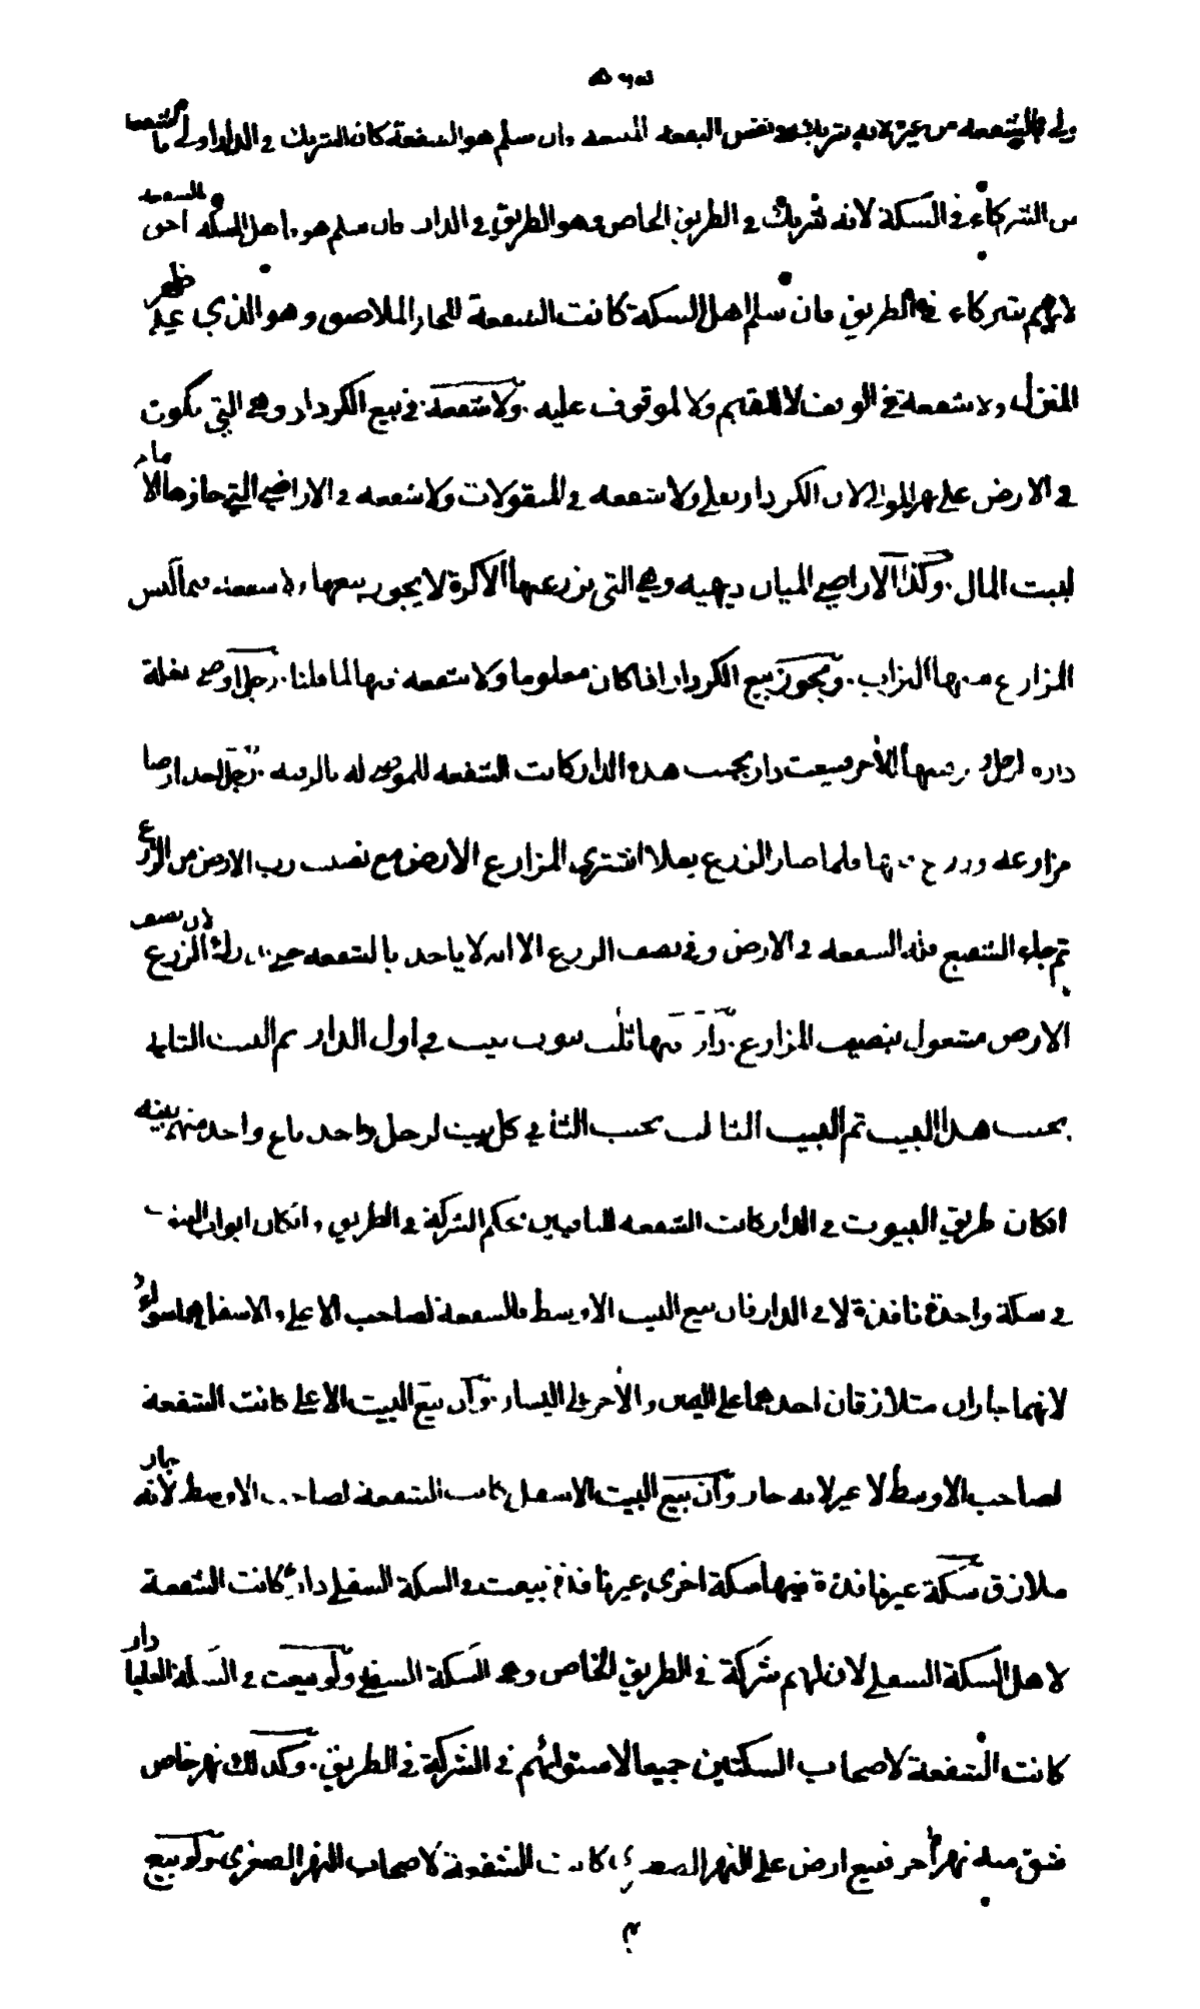 ولى بالشفعة من غيره لانه شريك في نفس البقعة المبيعة وان سلم هو الشفعة كان الشريك في الدار اولى بالشفعة
من الشركاء في السكة لانه شريك في الطريق الخاص وهو الطريق في الدار فان سلم هو فاهل السكة احق بالشفعة
لانهم شركاء في الطريق فان سلم اهل السكة كانت الشفعة للجار الملاصق وهو الذي على ظهر
المنزل ولا شفعة في الوقف لا للقيم ولا لموقوف عليه ولا شفعة في بيع الكردار وهي التي تكون
في الارض على نهر الموالي لان الكردار نقلي ولا شفعة في المنقولات ولا شفعة في الاراضي التي حازها الامام
لبيت المال وكذا الاراضي الميان ديهيه وهي التي يزرعها الاكرة لا يجوز بيعها ولا شفعة فيما كبس
المزارع فيها التراب ويجوز بيع الكردار اذا كان معلوما ولا شفعة فيها لما قلنا رجل اوصى بغلة
داره لرجل وبرقبتها لآخر فبيعت دار بجنب هذه الدار كانت الشفعة للموصى له بالرقبة رجل اخذ ارضا
مزارعة وزرع فيها فلما صار الزرع بقلا اشترى المزارع الارض مع نصيب رب الارض من الزرع
ثم جاء الشفيع فله الشفعة في الارض وفي نصف الزرع الا انه لا ياخذ بالشفعة حتى يدرك الزرع لان نصف
الارض مشغول بنصيب المزارع دار فيها ثلث بيوت بيت في اول الدار ثم البيت الثاني
بجنب هذا البيت ثم البيت الثالث بجنب الثاني كل بيت لرجل واحد باع واحد منهم بيته
انكان طريق البيوت في الدار كانت الشفعة للباقيين بحكم الشركة في الطريق وانكان ابواب البيوت
في سكة واحدة نافذة لا في الدار فان بيع البيت الاوسط فالشفعة لصاحب الاعلى والاسفل هما سواء
لانهما جاران متلازقان احدهما على اليمين والآخر على اليسار وان بيع البيت الاعلى كانت الشفعة
لصاحب الاوسط لا غير لانه جار وان بيع البيت الاسفل كانت الشفعة لصاحب الاوسط لانه جار
ملازق سكة غير نافذة فيها سكة اخرى غير نافذة فبيعت في السكة السفلى دار كانت الشفعة
لاهل السكة السفلى لان لهم شركة في الطريق الخاص وهو السكة السفلى ولو بيعت في السكة العليا دار
كانت الشفعة لاصحاب السكتين جميعا لاستوائهم في الشركة في الطريق وكذلك نهر خاص
شق منه نهر آخر فبيع ارض على النهر الصغرى كانت الشفعة لاصحاب النهر الصغرى ولو بيع